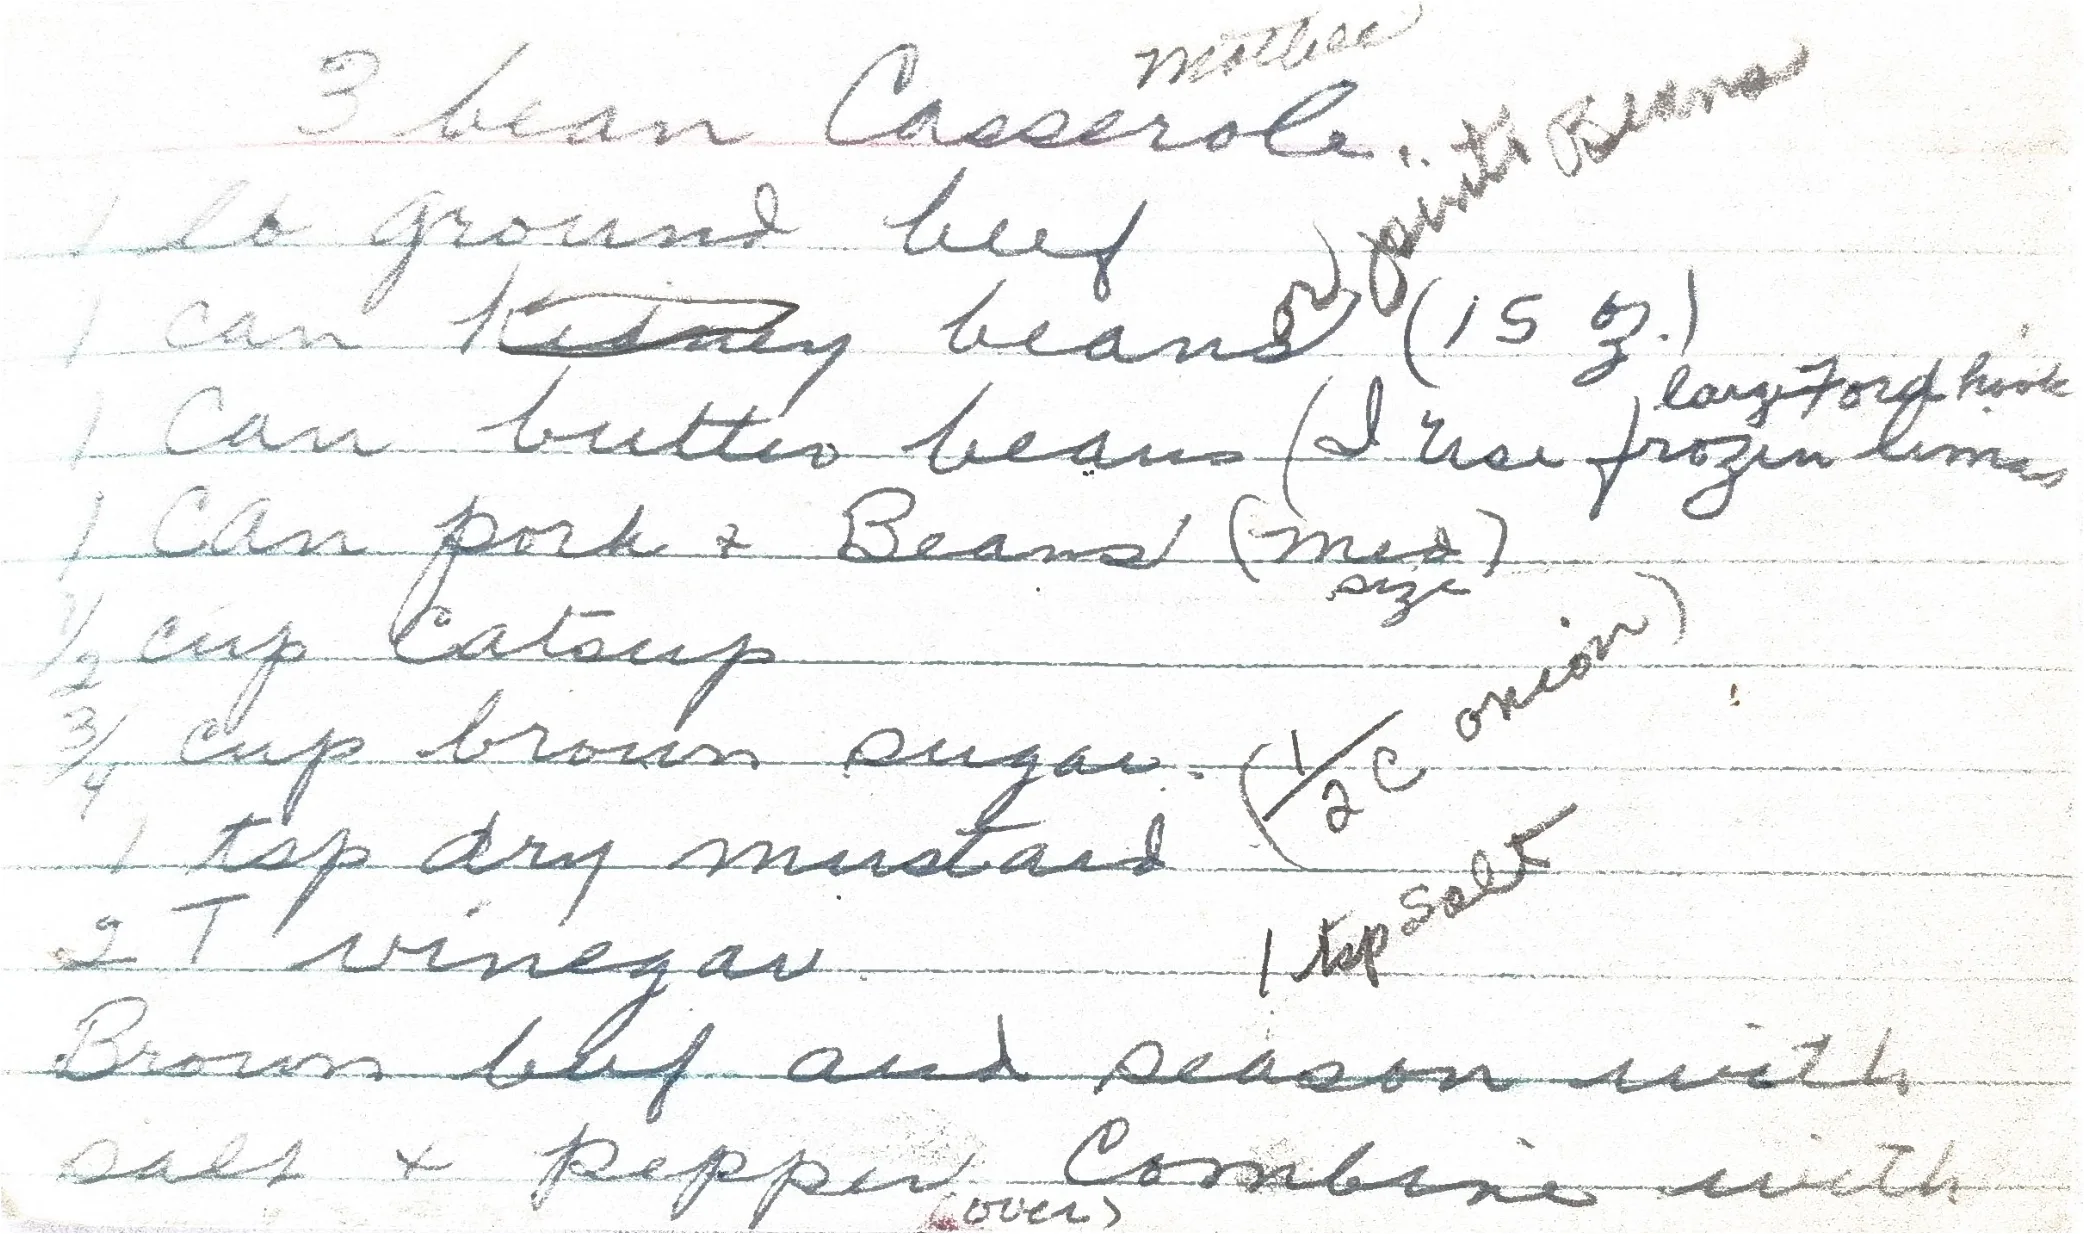 Mother
3 bean Casserole.
1 lb ground beef
1 can kidney beans or pinto Beans (15 oz.)
1 Can butter beans (I use frozen limas
large Ford hook
1 Can pork & Beans (med size)
1/2 cup Catsup
3/4 cup brown sugar. (1/2 C onion)
1 tsp dry mustard
1 tsp salt
2 T vinegar
Brown beef and season with
salt & pepper Combine with
(over)